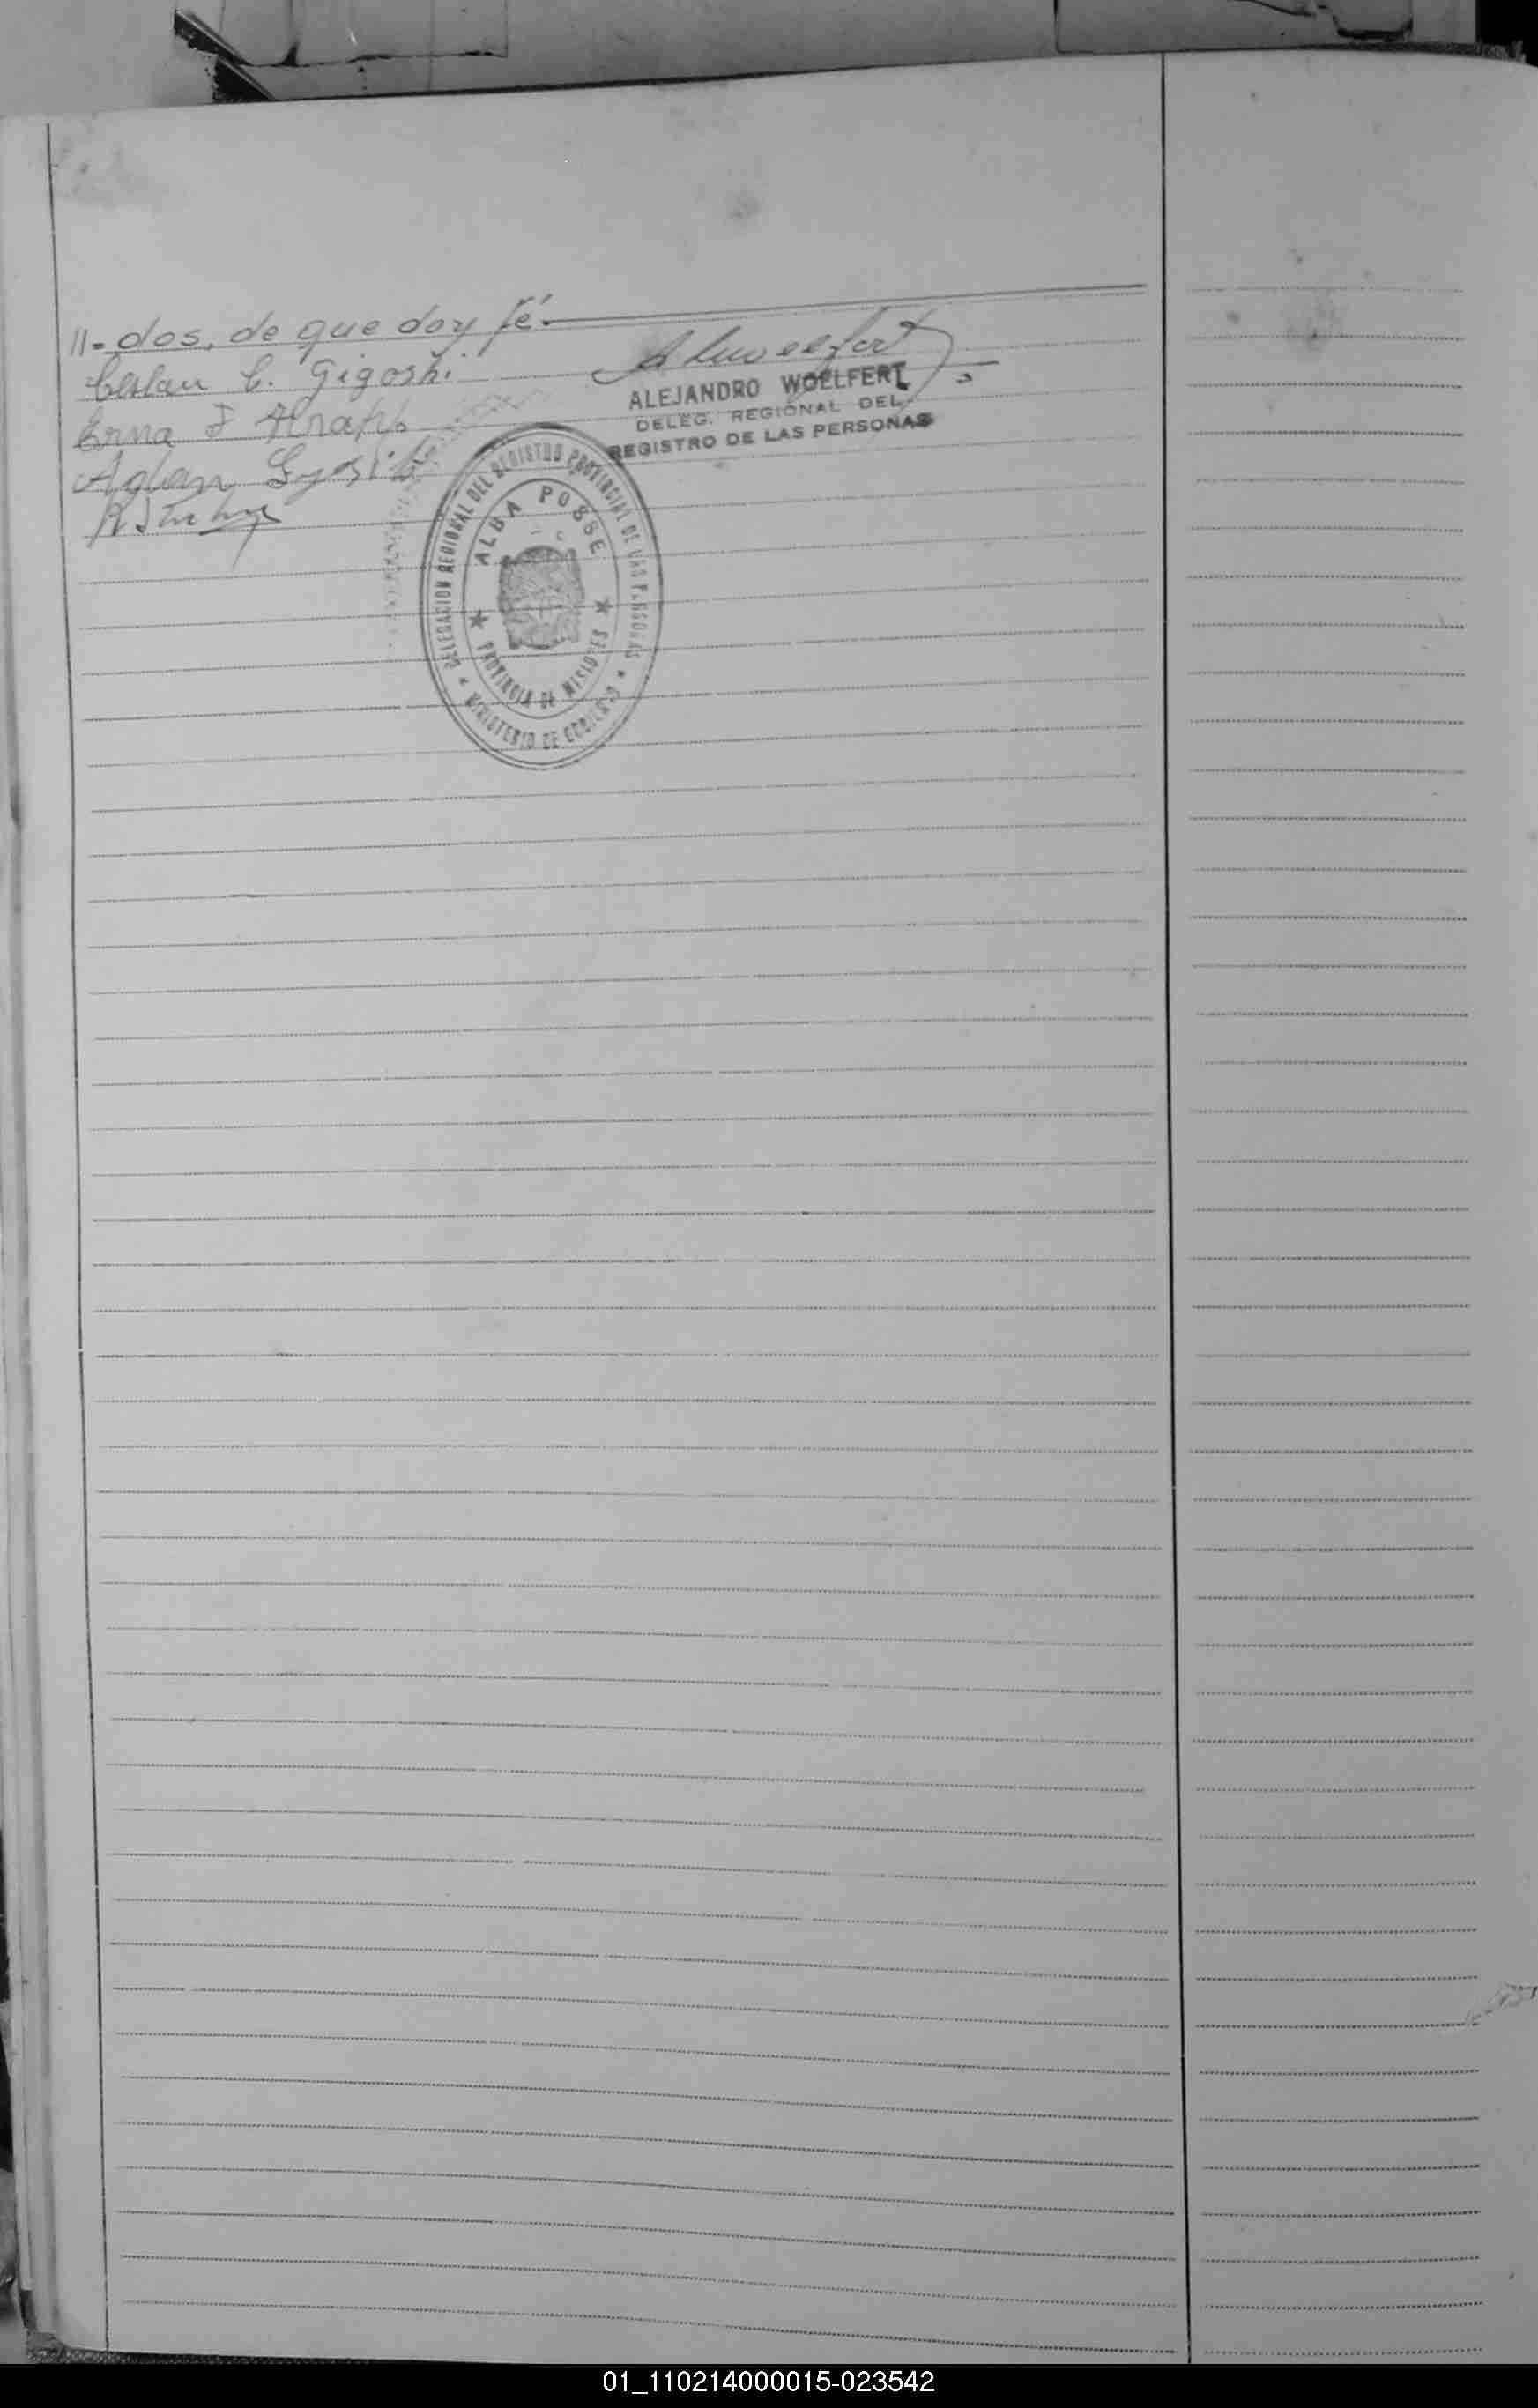 11=dos, de que doy fé.
Ceslau C. Gigoski
Erna F
Adan
ALEJANDRO WOELFERT
DELEG. REGIONAL DEL
REGISTRO DE LAS PERSONAS
DELEGACION REGIONAL DEL REGISTRO PROVINCIAL DE LAS PERSONAS
ALBA POSSE
PROVINCIA DE MISIONES
MINISTERIO DE GOBIERNO
01_110214000015-023542